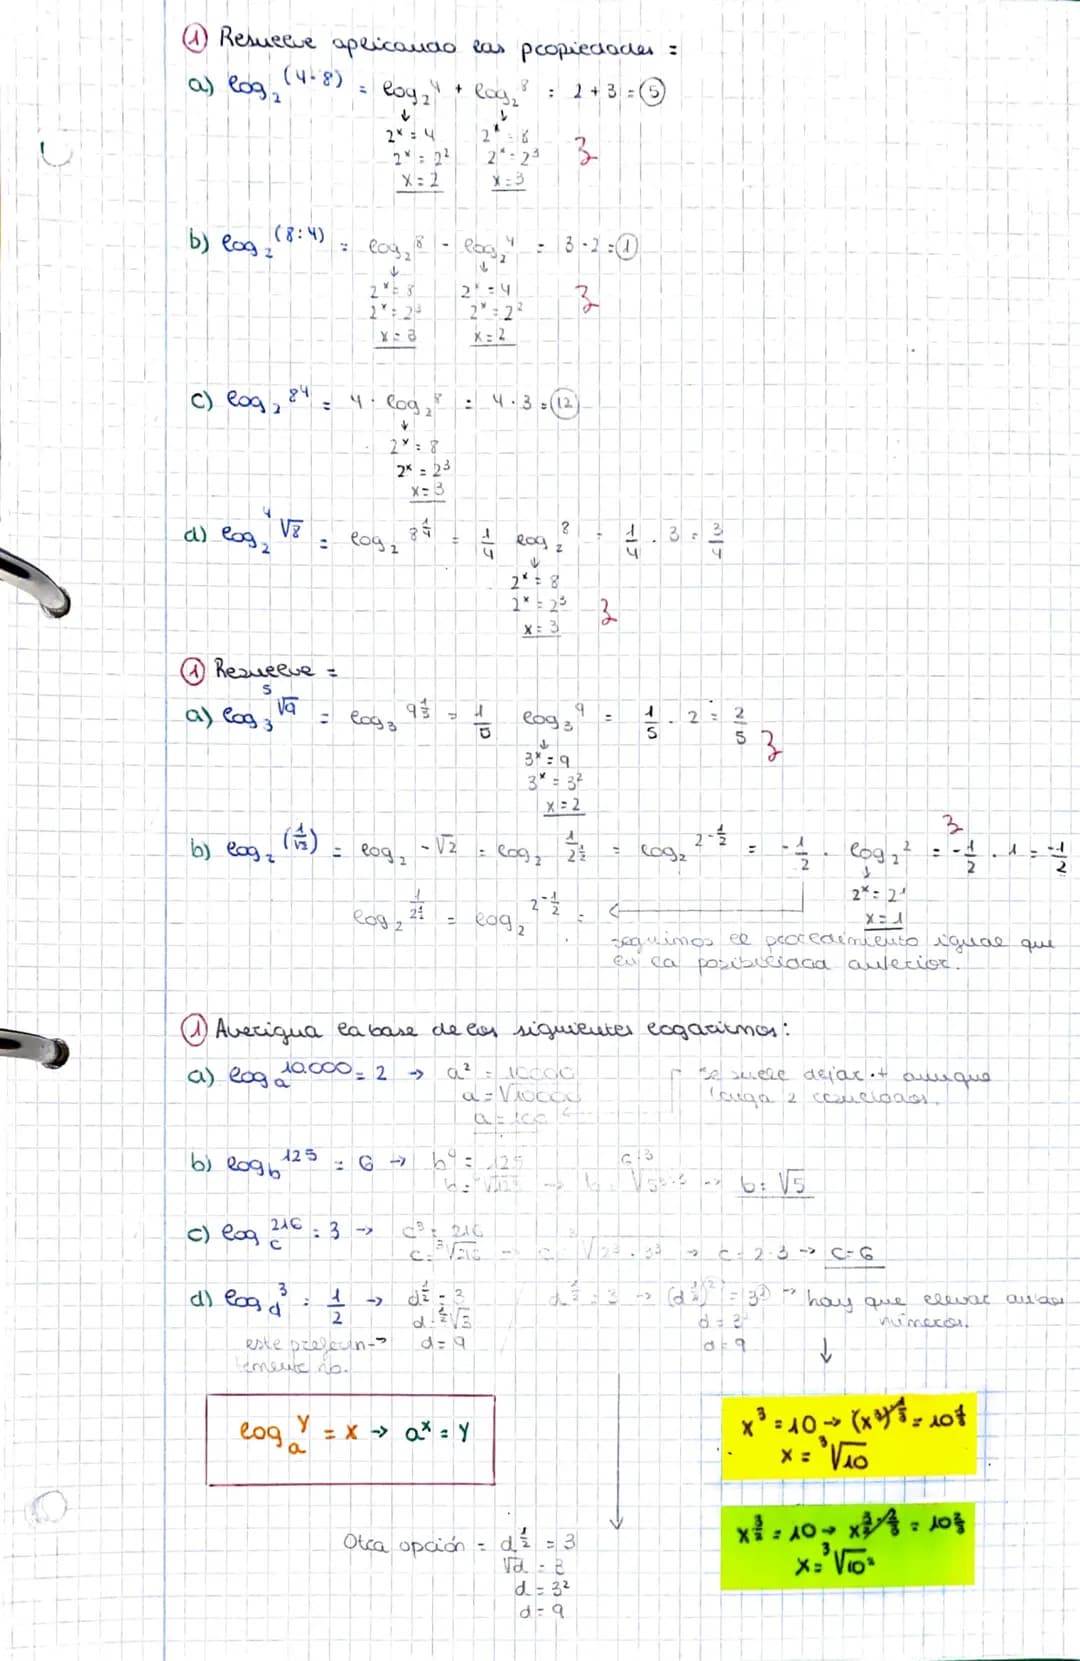 ① Resuelve aplicando las propiedades =
a) log₂^(4·8) = log₂⁴ + log₂⁸ = 2 + 3 = 5
↓ ↓
2ˣ = 4 2ˣ = 8
2ˣ = 2² 2ˣ = 2³ 3
x = 2 x = 3
b) log₂^(8:4) = log₂⁸ - log₂⁴ = 3 - 2 = 1
↓ ↓
2ˣ = 8 2ˣ = 4
2ˣ = 2³ 2ˣ = 2² 3
x = 3 x = 2
c) log₂ 8⁴ = 4 · log₂⁸ = 4 · 3 = 12
↓
2ˣ = 8
2ˣ = 2³
x = 3
d) log₂ ⁴√8 = log₂ 8^(1/4) = 1/4 log₂⁸ = 1/4 · 3 = 3/4
↓
2ˣ = 8
2ˣ = 2³ 3
x = 3
① Resuelve =
a) log₃ ⁵√9 = log₃ 9^(1/5) = 1/5 log₃⁹ = 1/5 · 2 = 2/5
↓ 3
3ˣ = 9
3ˣ = 3²
x = 2
3
b) log₂ (1/√2) = log₂ -√2 = log₂ 1/2^(1/2) = log₂ 2^(-1/2) = -1/2 · log₂² = -1/2 · 1 = -1/2
↓
2ˣ = 2¹
x = 1
log₂ 1/2^(1/2) = log₂ 2^(-1/2) = ←
seguimos el procedimiento igual que
en la posibilidad anterior.
① Averigua la base de los siguientes logaritmos:
a) log_a 10.000 = 2 → a² = 10000 se suele dejar + aunque
a = √10000 tenga 2 resultados.
a = 100 ←
b) log_b 125 = 6 → b⁶ = 125 6:3
b = ⁶√125 → b = √5^3:3 → b = √5
c) log_c 216 = 3 → c³ = 216
c = ³√216 → c = ³√2³ · 3³ → c = 2·3 → c = 6
d) log_d 3 = 1/2 → d^(1/2) = 3 / d^(1/2) = 3 → (d^(1/2))² = 3² → hay que elevar ambos
d = ^(1/2)√3 d = 3² números.
este preferen-→ d = 9 d = 9 ↓
temente no.
log_a Y = x → aˣ = Y
x³ = 10 → (x³)^(1/3) = 10^(1/3)
x = ³√10
x^(3/2) = 10 → x^(3/2 · 2/3) = 10^(2/3)
x = ³√10²
Otra opción = d^(1/2) = 3
√d = 3
d = 3²
d = 9